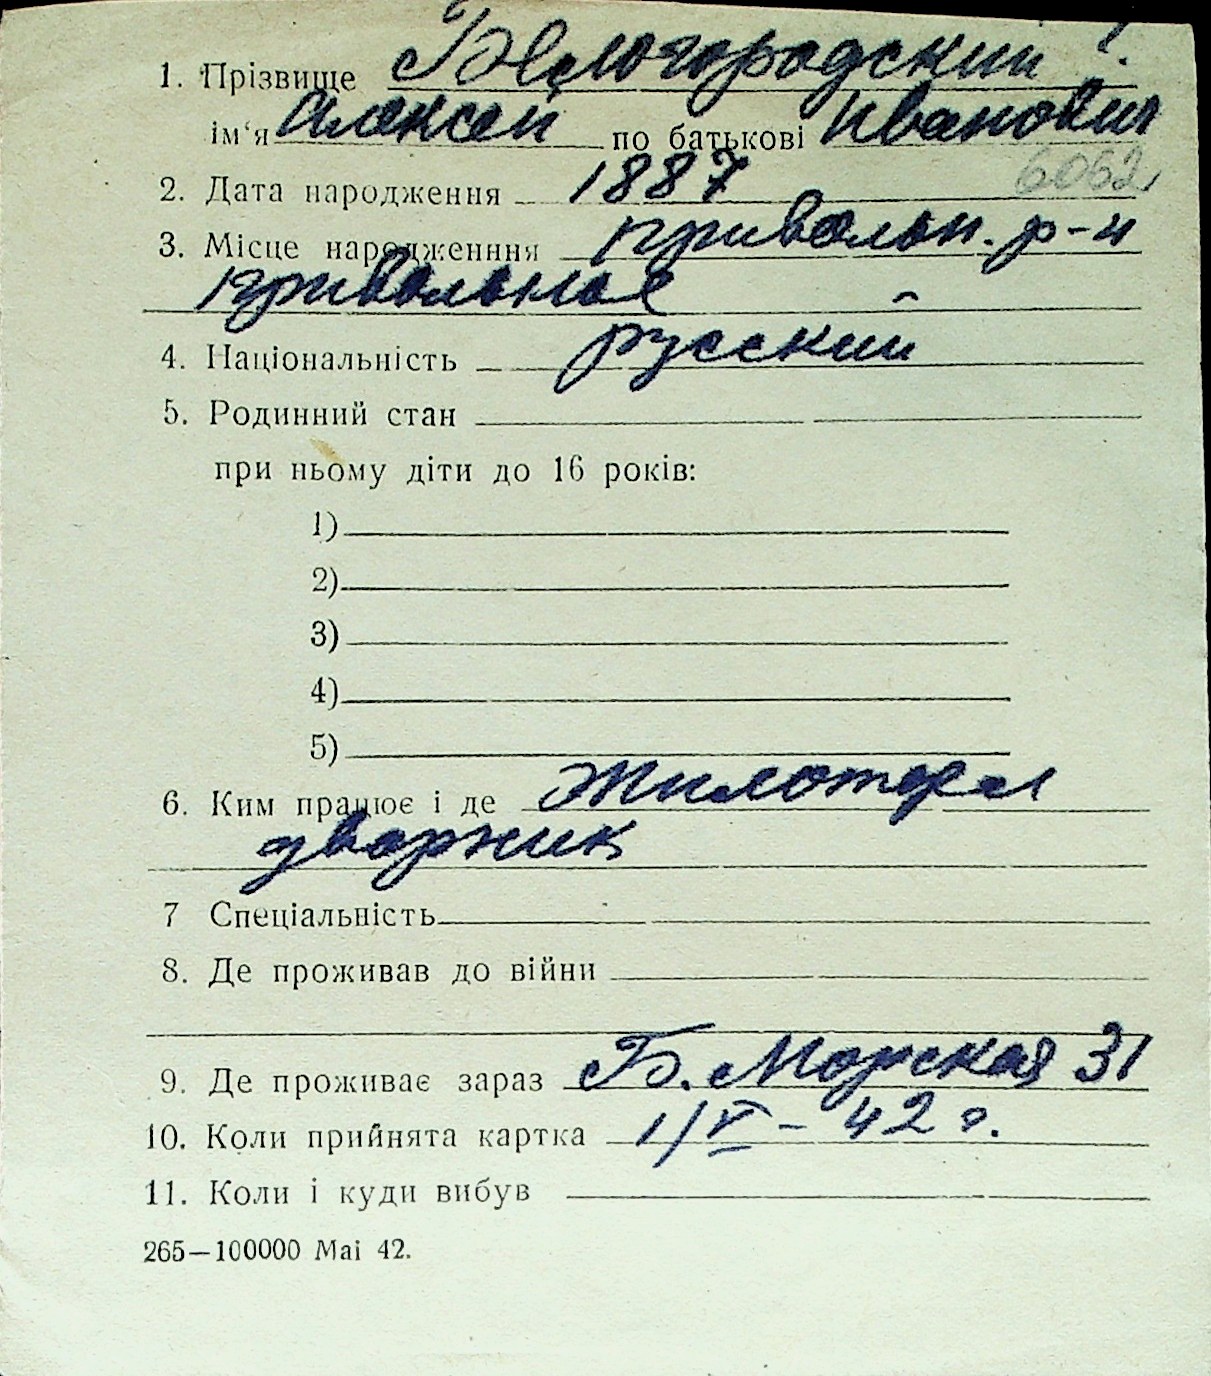 1. Прізвище Белогородский
ім‘я Алексей по батькові Иванович
6062
2. Дата народження 1887
3. Місце народженння Привольн. р-н
Привольная
4. Національність русский
5. Родинний стан
при ньому діти до 16 років:
1)
2)
3)
4)
5)
6. Ким працює і де Жилотдел
дворник
7 Спеціальність
8. Де проживав до війни
9. Де проживає зараз Б. Морская 31
10. Коли прийнята картка 1/V – 42 г.
11. Коли і куди вибув
265—100000 Mai 42.